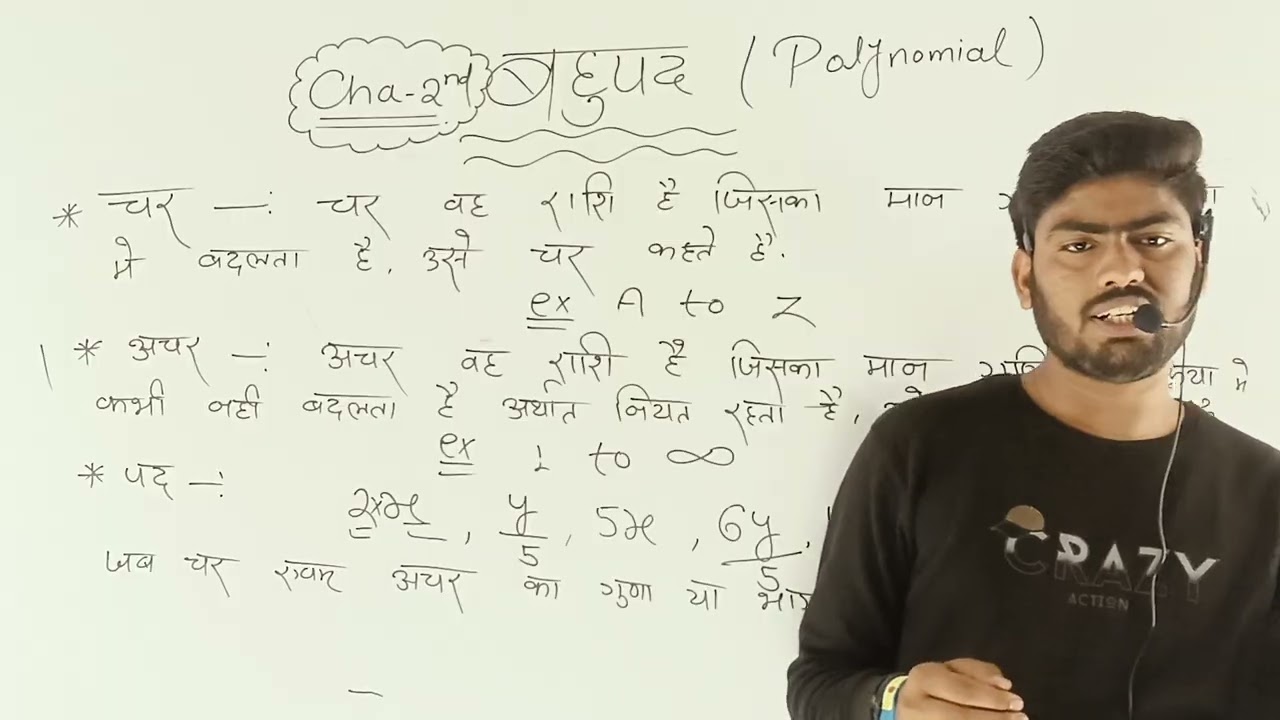 Cha-2nd बहुपद (Polynomial)
* चर —: चर वह राशि है जिसका मान
मे बदलता है, उसे चर कहते है.
ex A to Z
* अचर —: अचर वह राशि है जिसका मान
कभी नही बदलता है अर्थात नियत रहता है,
ex 1 to ∞
* पद —:
2×x, y/5, 5x, 6y/5,
जब चर एवम अचर का गुणा या
CRAZY
ACTION